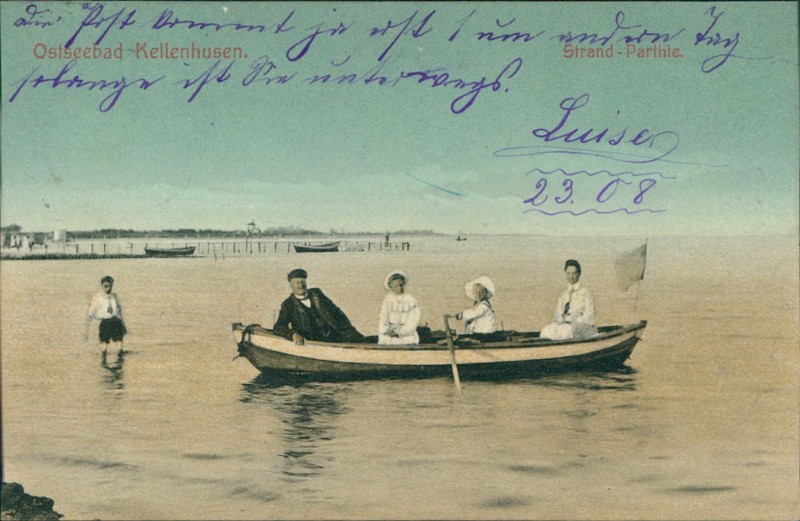 Die Post kommt ja erst 1 um andern Tag
Ostseebad Kellenhusen. Strand-Parthie.
solange ist Sie unterwegs.
Luise
23. 08